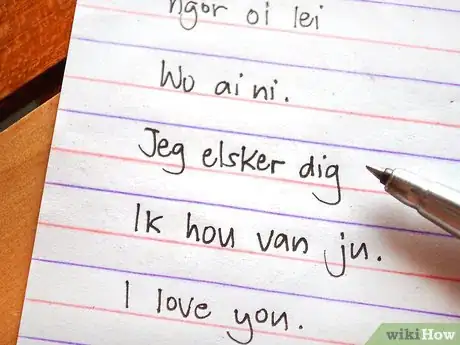 ngor oi lei
Wo ai ni.
Jeg elsker dig
Ik hou van ju.
I love you.
wikiHow